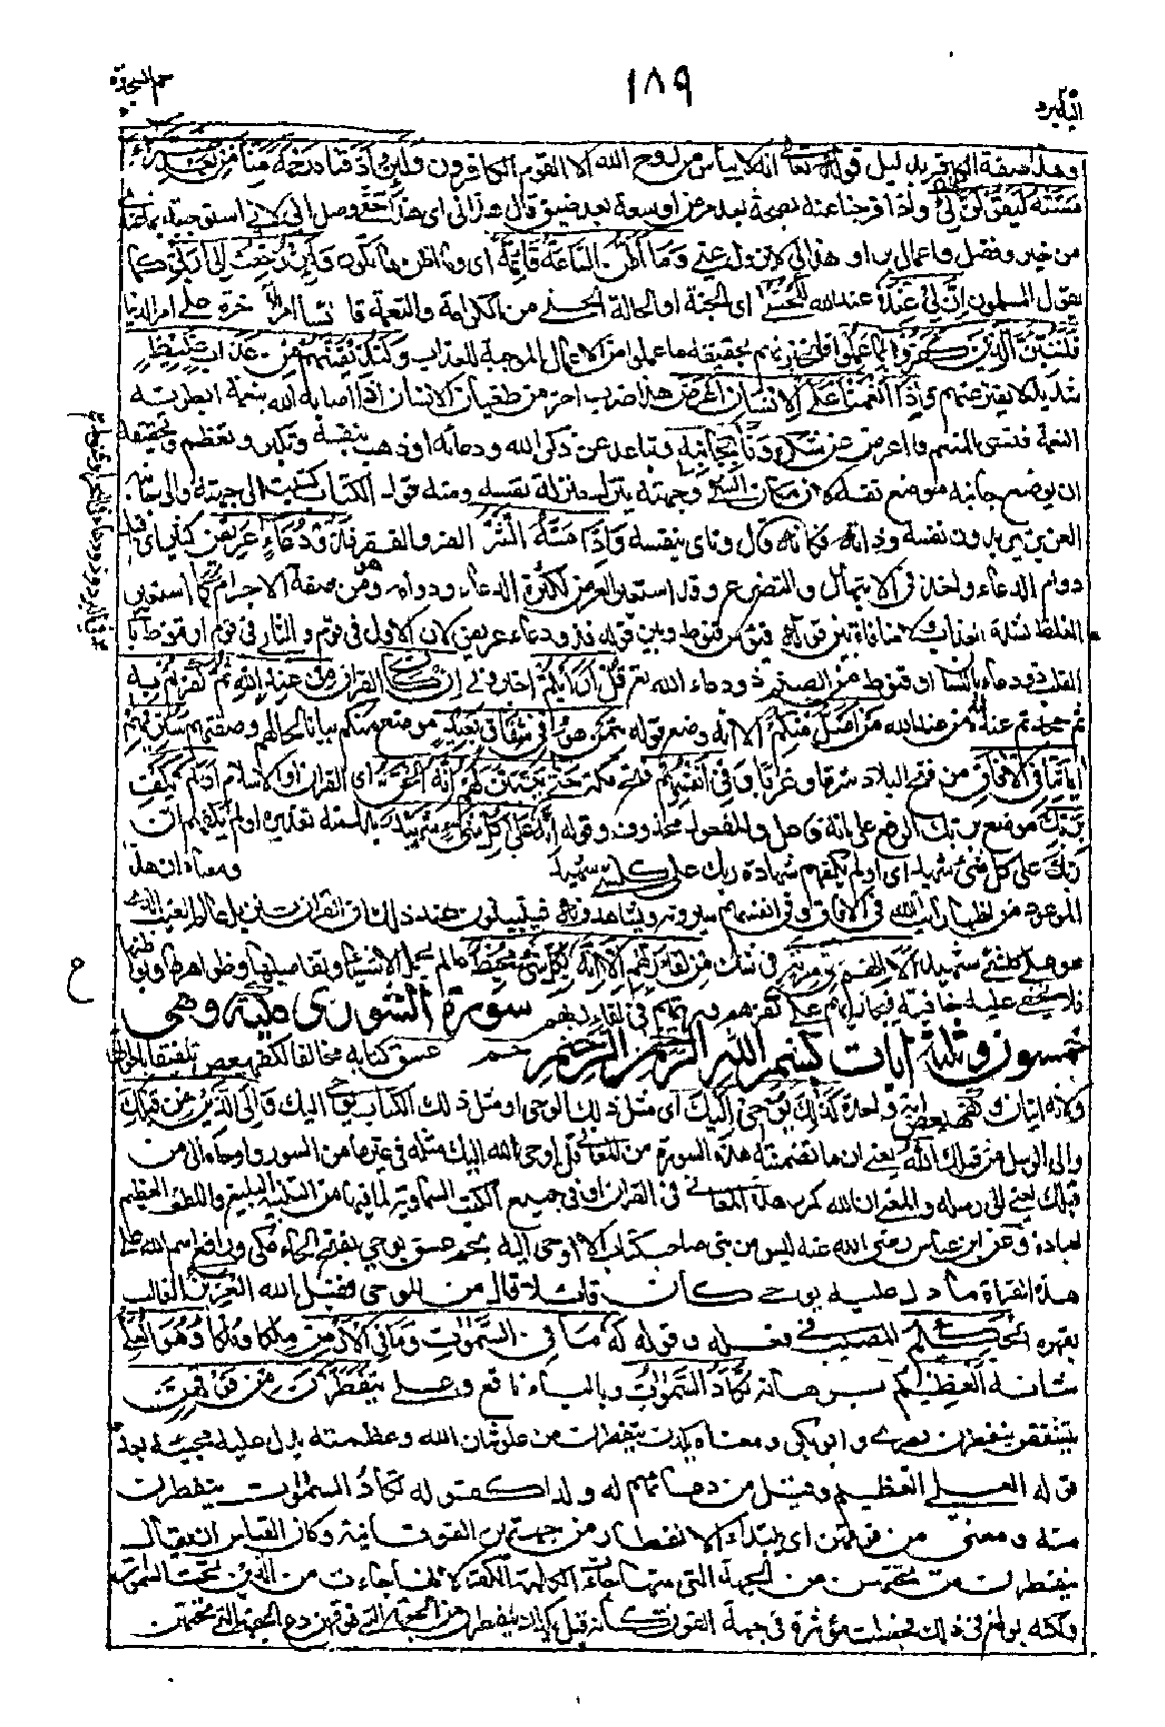 حم السجدة
١٨٩
اليه يرد ٢٥
وهذا صفة الكافر بدليل قوله تعالى انه لا ييأس من روح الله الا القوم الكافرون ولئن اذقناه رحمة منا من بعد ضراء
مسته ليقولن هذا لي واذا فرجنا عنه بصحة بعد مرض او سعة بعد ضيق قال هذا لي اي هذا حقي وصل الي لاني استوجبته بما عندي
من خير وفضل واعمال بر او هذا لي لا يزول عني وما اظن الساعة قائمة اي وما اظنها تكون ولئن رجعت الى ربي كما
يقول المسلمون ان لي عنده عند الله للحسنى اي الجنة او الحالة الحسنى من الكرامة والنعمة قائسا امر الآخرة على امر الدنيا
فلننبئن الذين كفروا بما عملوا فلنخبرنهم بحقيقة ما عملوا من الاعمال الموجبة للعذاب ولنذيقنهم من عذاب غليظ
شديد لا يفتر عنهم واذا انعمنا على الانسان اعرض هذا ضرب اخر من طغيان الانسان اذا اصابه الله بنعمة ابطرته
النعمة فنسي المنعم واعرض عن شكره ونأى بجانبه وتباعد عن ذكر الله ودعائه او ذهب بنفسه وتكبر وتعظم وتحقيقه
ان يوضع جانبه موضع نفسه لان مكان الشيء وجهته ينزل منزلة نفسه ومنه قول الكتاب كتبت الى جهته والى جانبه
العزيز يريدون نفسه وذاته فكانه قال ونأى بنفسه واذا مسه الشر الضر والفقر فذو دعاء عريض كثير اي
دوام الدعاء واخذ في الابتهال والتضرع وقد استعير العرض لكثرة الدعاء ودوامه وهو من صفة الاجرام كما استعير
الغلظ لشدة العذاب ولا منافاة بين قوله فيؤس قنوط وبين قوله فذو دعاء عريض لان الاول في قوم والثاني في قوم او قنوط
القلب ذو دعاء باللسان او قنوط من الصنم ذو دعاء الله تعالى قل ارأيتم اخبروني ان كان القرآن من عند الله ثم كفرتم به
ثم جحدتم انه من عند الله من اضل منكم الا انه وضع قوله ممن هو في شقاق بعيد موضع منكم بيانا لحالهم وصفتهم سنريهم
اياتنا في الآفاق من فتح البلاد شرقا وغربا وفي انفسهم فتح مكة حتى يتبين لهم انه الحق اي القرآن او الاسلام اولم يكف
بربك موضع بربك الرفع على انه فاعل والمفعول محذوف وقوله انه على كل شيء شهيد بدل منه تقديره اولم يكفهم ان
ربك على كل شيء شهيد اي اولم يكفهم شهادة ربك على كل شيء شهيد ومعناه ان هذا
الموعود من اظهار آيات الله في الآفاق وفي انفسهم سيرونه ويشاهدونه فيتبينون عند ذلك ان القرآن تنزيل عالم الغيب الذي
هو على كل شيء شهيد الا انهم في مرية في شك من لقاء ربهم الا انه بكل شيء محيط عالم بجمل الاشياء وتفاصيلها وظواهرها وبواطنها
فلا تخفى عليه خافية فيجازيهم على كفرهم ومريتهم في لقاء ربهم سورة الشورى مكية وهي
خمسون وثلث آيات بسم الله الرحمن الرحيم حم عسق كتابه مخالفا لكهيعص تلفيقا باخواتها
ولانه ايتان وكهيعص اية واحدة كذلك يوحي اليك اي مثل ذلك الوحي او مثل ذلك الكتاب يوحى اليك والى الذين من قبلك
والى الرسل من قبلك الله يعني ان ما تضمنته هذه السورة من المعاني قد اوحى الله اليك مثله في غيرها من السور واوحاه الى من
قبلك يعني الى رسله والمعنى ان الله كرر هذه المعاني في القرآن وفي جميع الكتب السماوية لما فيها من التنبيه البليغ واللطف العظيم
لعباده وعن ابن عباس رضي الله عنه ليس من نبي صاحب كتاب الا اوحي اليه بحم عسق يوحي بفتح الحاء مكي ورافع اسم الله على
هذه القراءة ما دل عليه يوحى كأن قائلا قال من الموحي فقيل الله العزيز الغالب
بقهره الحكيم المصيب في فعله وقوله له ما في السموات وما في الارض ملكا وملكا وهو العلي
شانه العظيم برهانه تكاد السموات وبالياء نافع وعلي يتفطرن من فوقهن
يتشققن ينفطرن بصري وابو بكر ومعناه يكدن يتفطرن من علو شان الله وعظمته يدل عليه مجيئه بعد
قوله العلي العظيم وقيل من دعائهم له ولدا كقوله تكاد السموات يتفطرن
منه ومعنى من فوقهن اي يبتدأ الانفطار من جهتهن الفوقانية وكان القياس ان يقال
يتفطرن من تحتهن من الجهة التي منها جاءت كلمة الكفر لانها جاءت من الذين تحت السموات
ولكنه بولغ في ذلك فجعلت مؤثرة في جهة الفوق كأنه قيل يكدن يتفطرن من الجهة التي فوقهن دع الجهة التي تحتهن